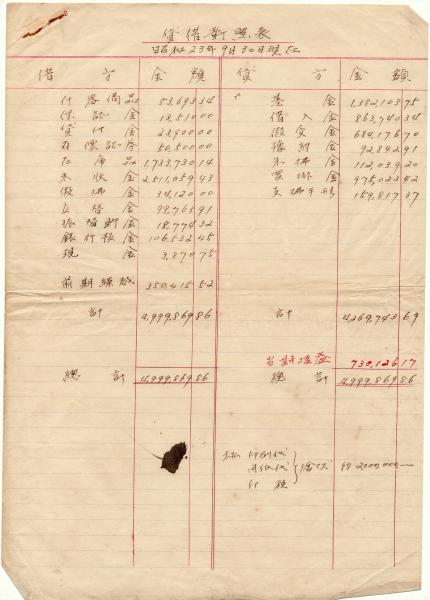 貸借対照表
昭和23年9月30日現在
借 方 金 額 貸 方 金 額
什器備品 53,693 34 基 金 1,382,103 75
保証金 13,510 00 借入金 863,740 34
貸付金 23,900 00 仮受金 684,176 70
有価証券 50,500 00 預約金 92,842 91
在庫品 1,733,730 14 未払金 112,039 20
未收金 2,511,059 43 買掛金 975,023 42
仮払金 34,120 00 支払手形 159,817 37
立替金 99,763 91
振替貯金 18,774 32
銀行預金 106,532 45
現 金 3,870 75
前期繰越 350,415 52
計 4,999,869 86 計 4,269,743 69
当期損益 730,126 17
総 計 4,999,869 86 総 計 4,999,869 86
未払 印刷代
用紙代
印 税
約 2,000,000.—